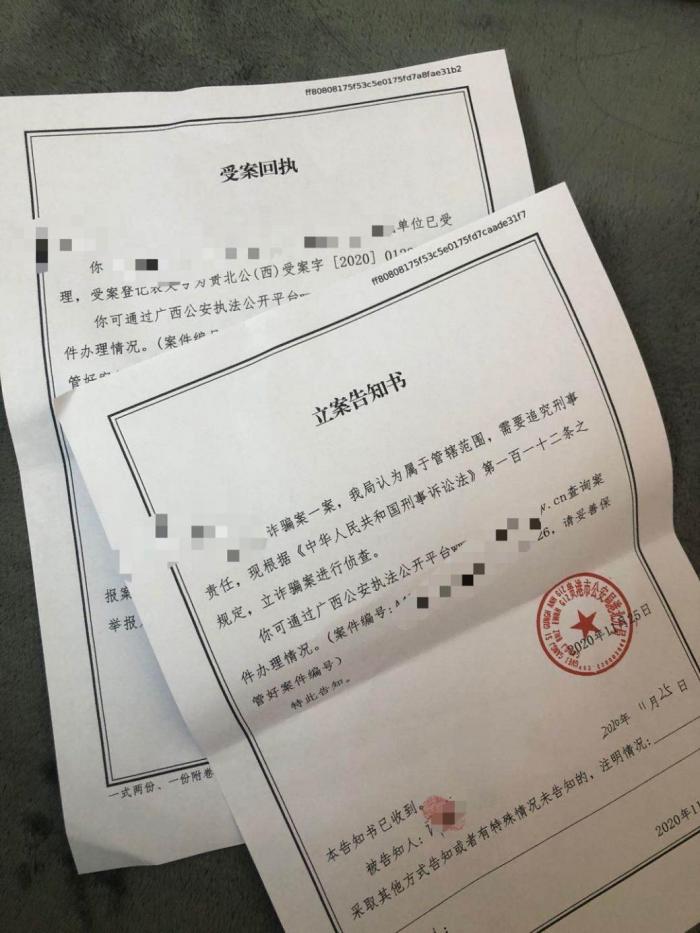 ff80808175f53c5e0175fd7a8fae31b2
受案回执
你
单位已受
理，受案登记表文号为贵北公(西)受案字[2020]01
你可通过广西公安执法公开平台
件办理情况。(案件编号
管好
报案
举报
一式两份、一份附卷
ff80808175f53c5e0175fd7caade31f7
立案告知书
诈骗案一案，我局认为属于管辖范围，需要追究刑事
责任，现根据《中华人民共和国刑事诉讼法》第一百一十二条之
规定，立诈骗案进行侦查。
你可通过广西公安执法公开平台w .cn查询案
件办理情况。(案件编号: 26，请妥善保
管好案件编号)
特此告知。
贵港市公安局港北分局
2020年11月25日
2020年 11月 25 日
本告知书已收到。
被告知人：
采取其他方式告知或者有特殊情况未告知的，注明情况：
2020年11